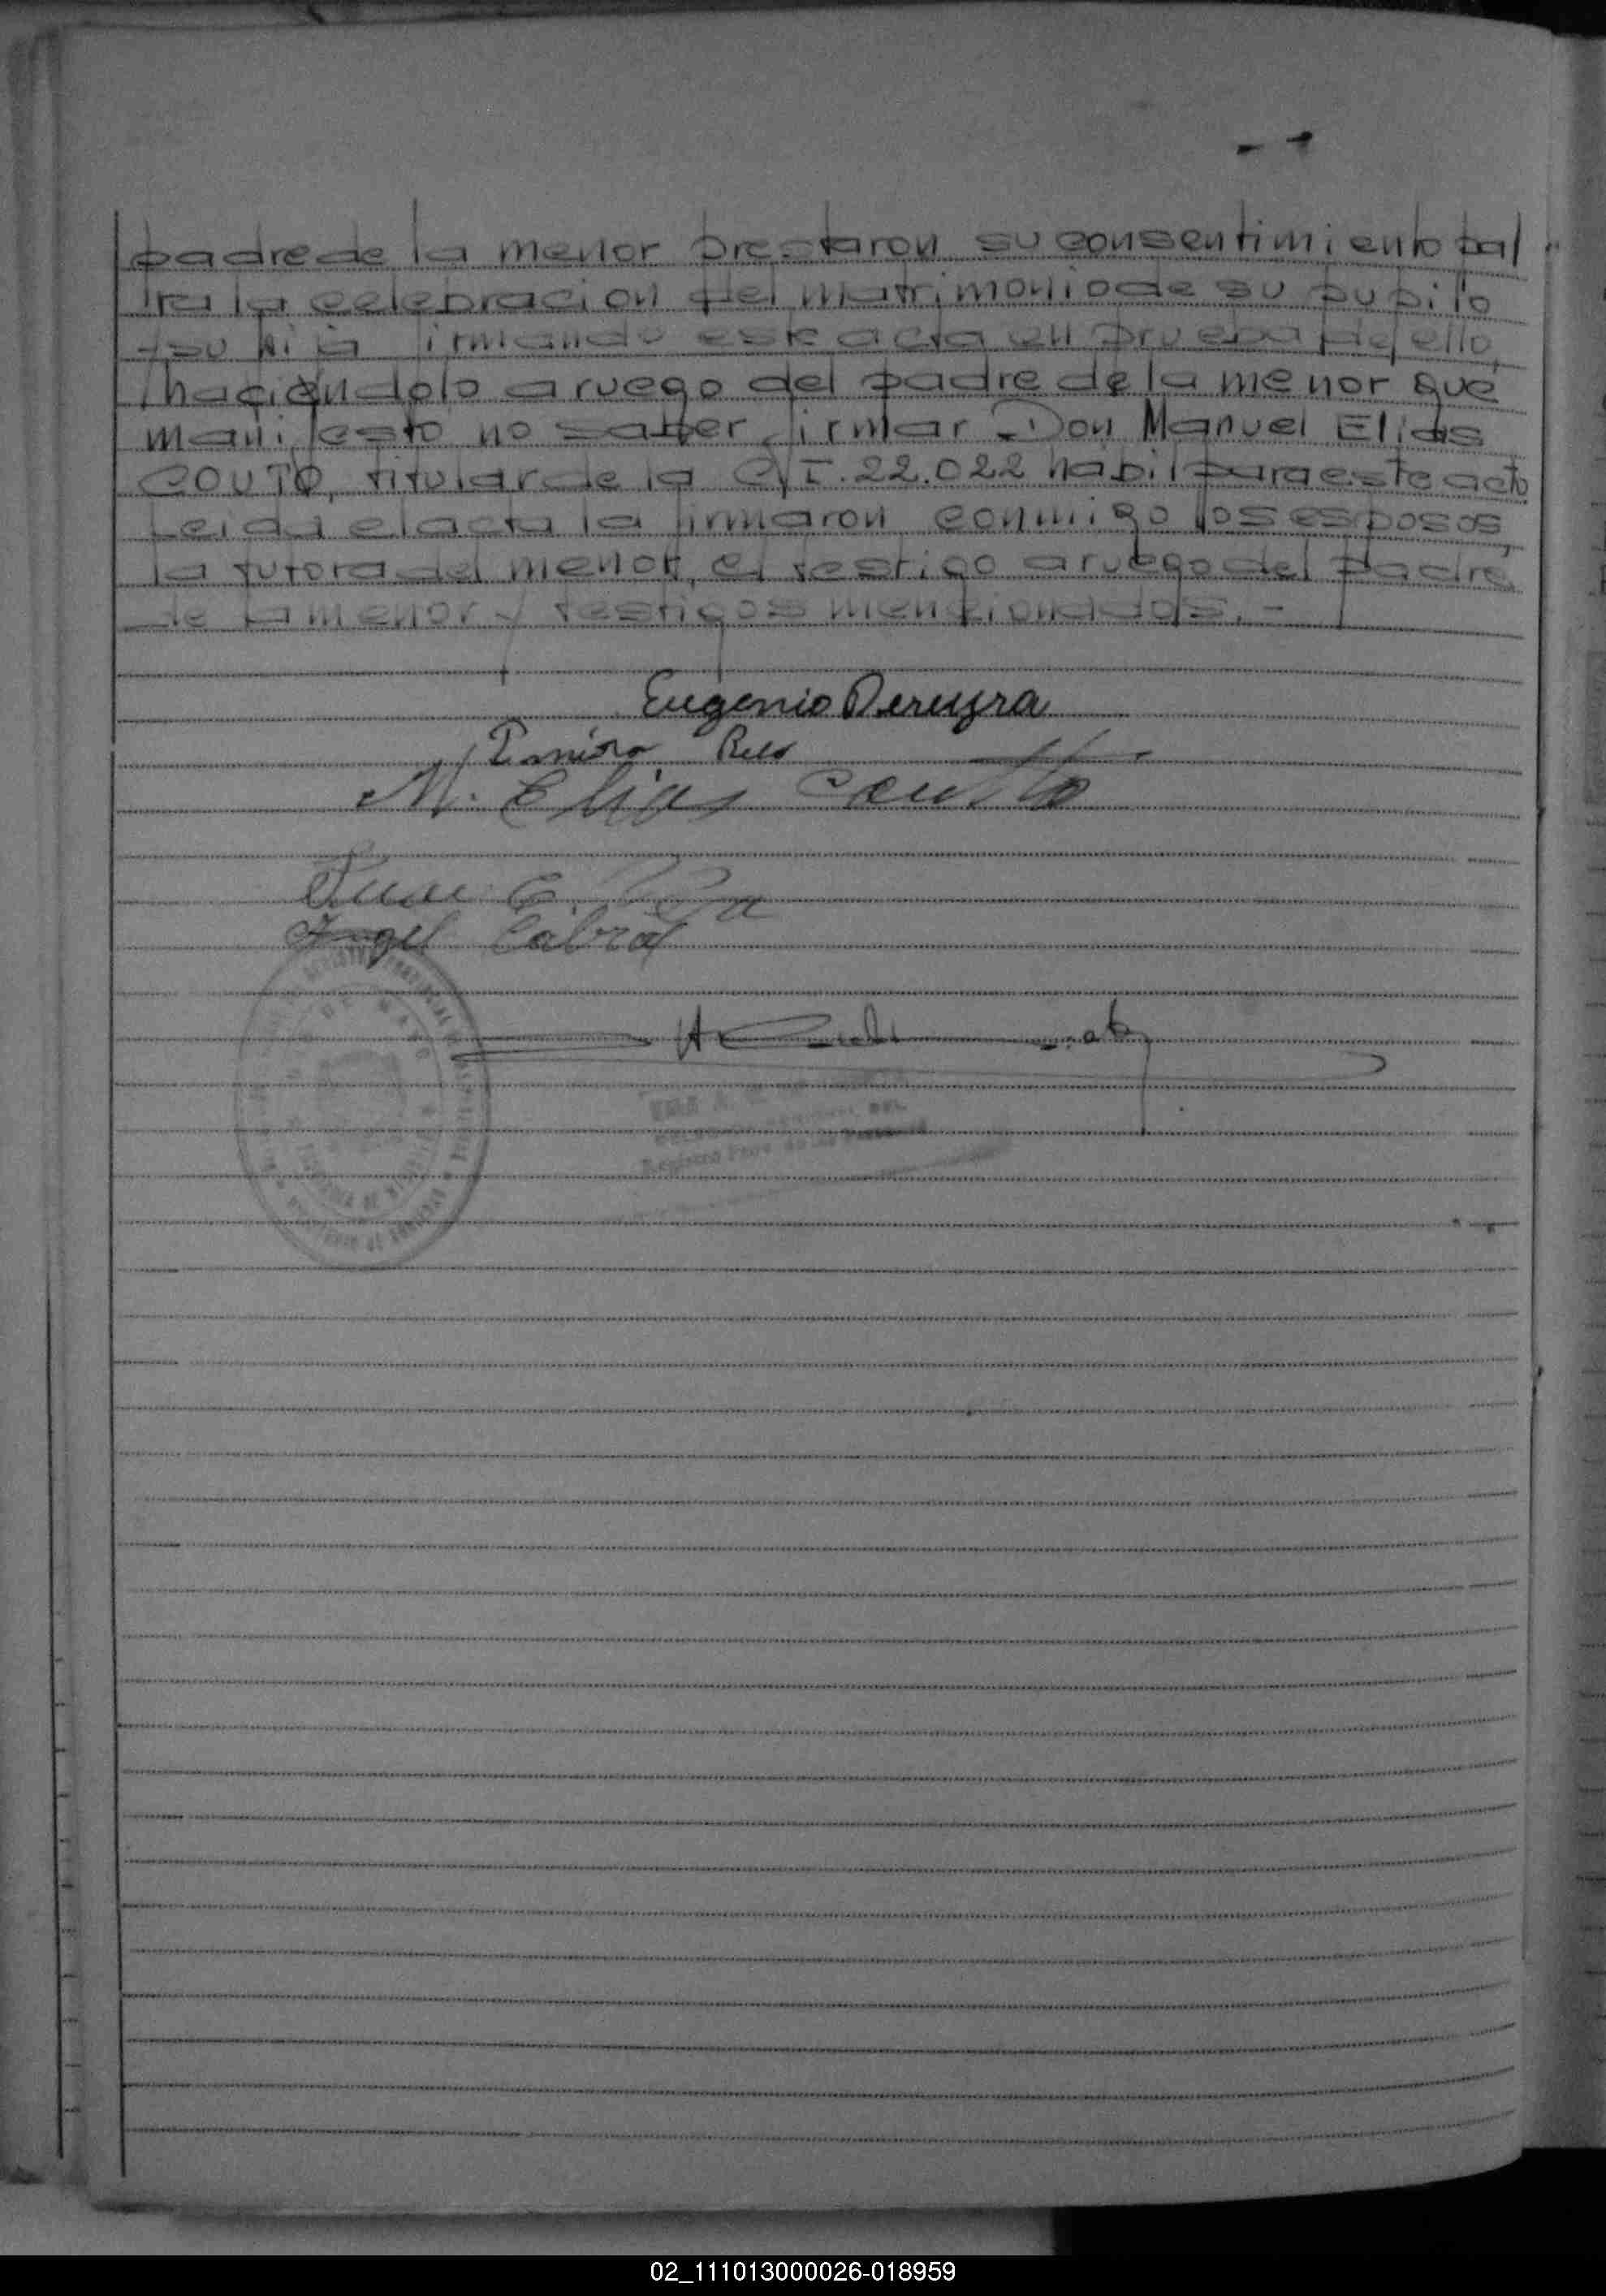 padre de la menor prestaron su consentimiento pa/
ra la celebracion del matrimonio de su pupilo
y su hija firmando este acta en prueba de ello,
haciéndolo a ruego del padre de la menor que
manifesto no saber firmar Don Manuel Elias
COUTO, titular de la C/I. 22.022 habil para este acto
Leida el acta la firmaron conmigo los esposos,
la tutora del menor, el testigo a ruego del padre
de la menor y testigos mencionados.-
Eugenio Pereyra
M. Elias Couto
Angel Cabral
02_111013000026-018959